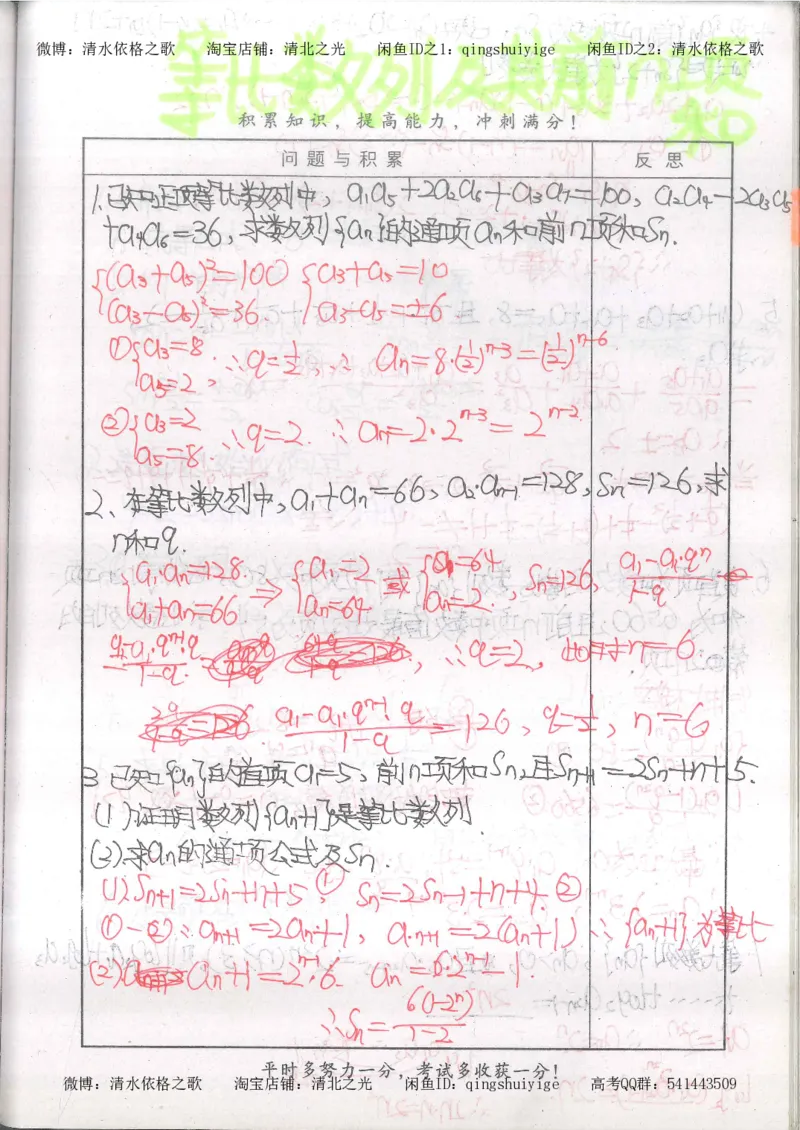 微博：清水依格之歌 淘宝店铺：清北之光 闲鱼ID之1：qingshuiyige 闲鱼ID之2：清水依格之歌
等比数列及其前n项和
积累知识，提高能力，冲刺满分！
问题与积累 反思
1.已知正项等比数列中，a₁a₅+2a₂a₆+a₃a₇=100，a₂a₄-2a₃a₅
+a₄a₆=36，求数列{aₙ}的通项aₙ和前n项和Sₙ.
{(a₃+a₅)²=100 {a₃+a₅=10
(a₃-a₅)²=36. a₃-a₅=±6
①{a₃=8 ∴q=1/2, ∴ aₙ=8·(1/2)ⁿ⁻³=(1/2)ⁿ⁻⁶
a₅=2,
②{a₃=2 ∴q=2. ∴ aₙ=2·2ⁿ⁻³=2ⁿ⁻².
a₅=8.
2、在等比数列中，a₁+aₙ=66，a₂·aₙ₋₁=128，Sₙ=126，求
n和q.
{a₁·aₙ=128. ⇒ {a₁=2 或 {a₁=64 , Sₙ=126, a₁-a₁·qⁿ/1-q
a₁+aₙ=66 aₙ=64 aₙ=2.
a₁-a₁·qⁿ⁻¹·q/1-q , ∴q=2, 此时n=6
a₁-a₁·qⁿ⁻¹·q/1-q=126, q=1/2, n=6
3.已知{aₙ}的首项a₁=5，前n项和Sₙ，且Sₙ₊₁=2Sₙ+n+5.
(1)证明数列{aₙ+1}是等比数列
(2)求aₙ的通项公式及Sₙ.
(1)Sₙ₊₁=2Sₙ+n+5 ① Sₙ=2Sₙ₋₁+n+4 ②
①-②∴aₙ₊₁=2aₙ+1, aₙ₊₁=2(aₙ+1) ∴{aₙ+1}为等比
(2) aₙ+1=2ⁿ⁻¹·6. aₙ=6·2ⁿ⁻¹-1.
∴Sₙ=6(1-2ⁿ)/1-2
平时多努力一分，考试多收获一分！
微博：清水依格之歌 淘宝店铺：清北之光 闲鱼ID：qingshuiyige 高考QQ群：541443509